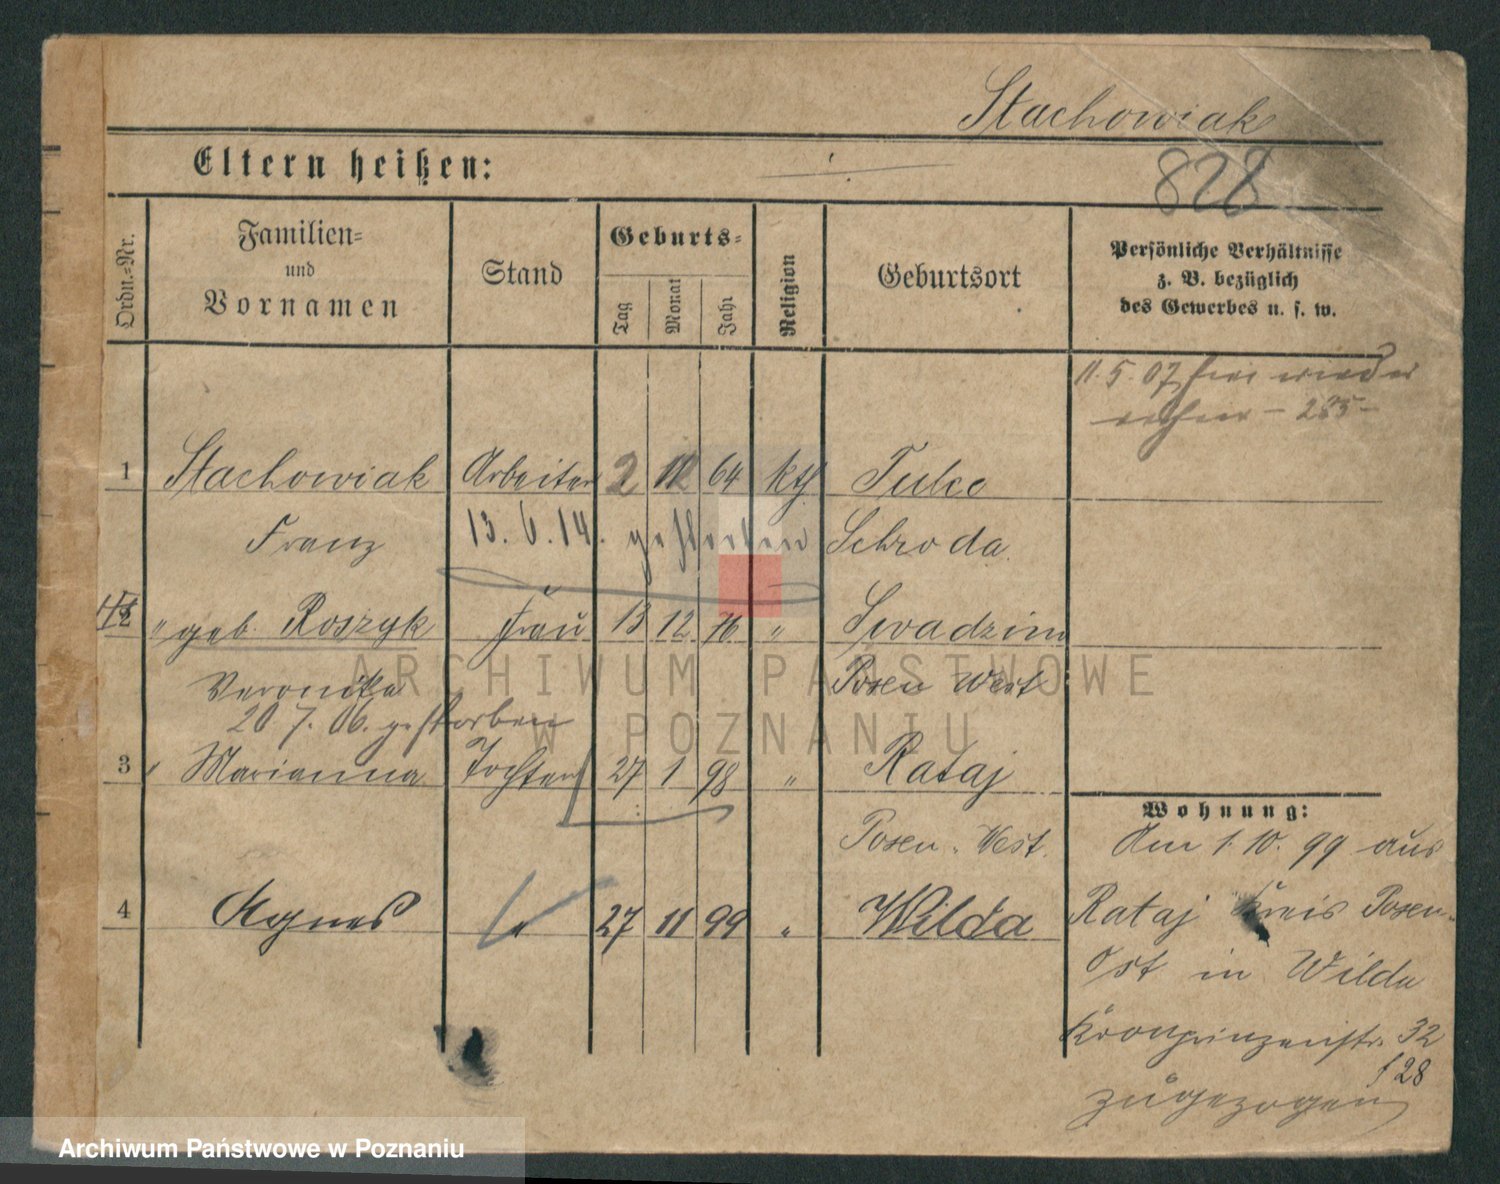 Stachowiak
Eltern heißen:
828
Ordn.-Nr.
Familien-
und
Vornamen
Stand
Geburts-
Tag
Monat
Jahr
Religion
Geburtsort
Persönliche Verhältnisse
z. B. bezüglich
des Gewerbes u. s. w.
11.5.07 wieder
285
1 Stachowiak Arbeiter 2 11 64 kth Tulce
Franz 13.6.14. gestorben Schroda
2 " geb. Roszyk Frau 13 12 76 " Swadzim
Veronika Posen West
20 7. 06. gestorben
3 " Marianna Tochter 27 1 98 " Rataj
Posen. West.
4 Agnes " 27 11 99 " Wilda
Wohnung:
Am 1.10.99 aus
Rataj Kreis Posen-
Ost in Wilda
Kronprinzenstr. 32
28
zugezogen
ARCHIWUM PAŃSTWOWE
W POZNANIU
Archiwum Państwowe w Poznaniu